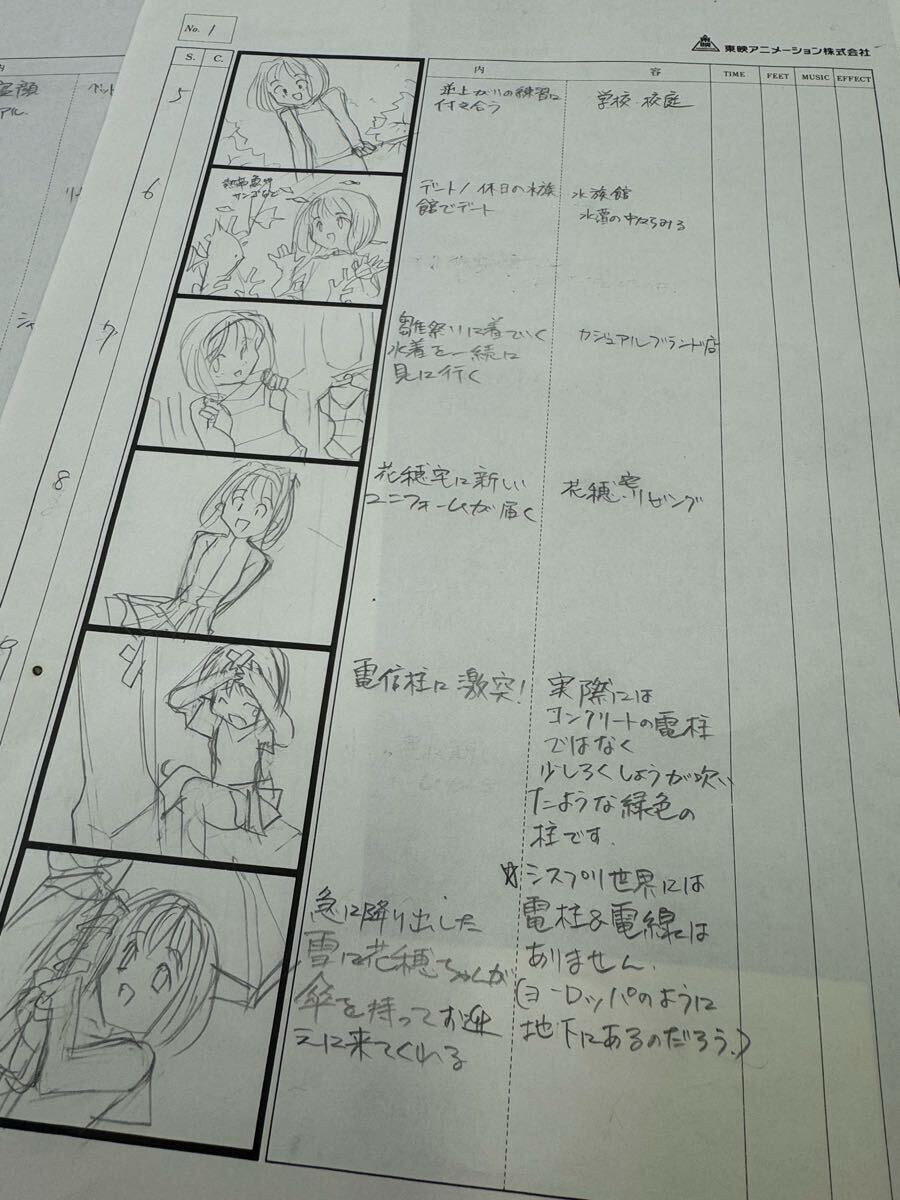 No. 1
東映アニメーション株式会社
S. C. 内 容 TIME FEET MUSIC EFFECT
5
逆上がりの練習に
付き合う
学校・校庭
6
熱帯魚や
サンゴなど
デート/休日の水族
館でデート
水族館
水藻の中からみる
7
雛祭りに着ていく
水着を一緒に
見に行く
カジュアルブランド店
8
花穂宅に新しい
ユニフォームが届く
花穂宅リビング
9
電信柱に激突!
実際には
コンクリートの電柱
ではなく
少しろくしょうが吹い
たような緑色の
柱です.
急に降り出した
雪に花穂ちゃんが
傘を持ってお迎
えに来てくれる
☆シスプリ世界には
電柱&電線は
ありません.
(ヨーロッパのように
地下にあるのだろう.)
内